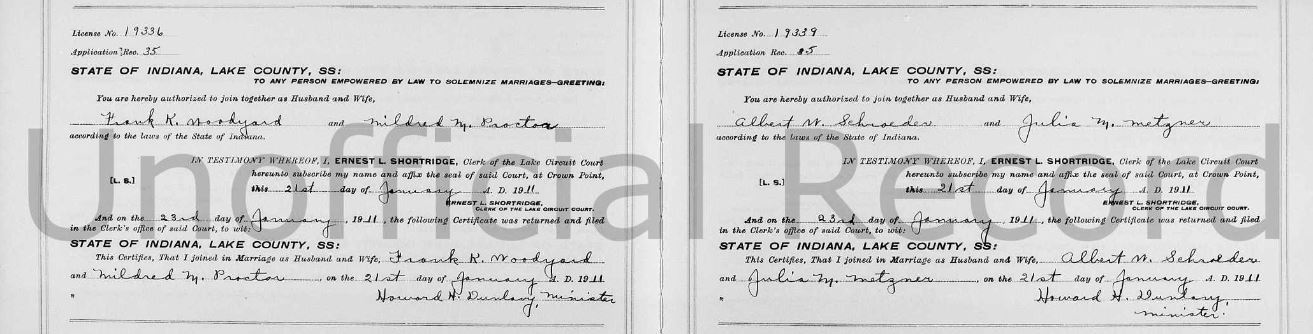 License No. 19336
Application Rec. 35
STATE OF INDIANA, LAKE COUNTY, SS:
TO ANY PERSON EMPOWERED BY LAW TO SOLEMNIZE MARRIAGES—GREETING:
You are hereby authorized to join together as Husband and Wife,
Frank K. Woodyard and Mildred M. Proctor
according to the laws of the State of Indiana.
IN TESTIMONY WHEREOF, I, ERNEST L. SHORTRIDGE, Clerk of the Lake Circuit Court
hereunto subscribe my name and affix the seal of said Court, at Crown Point,
[L. S.] this 21st day of January A. D. 1911
ERNEST L. SHORTRIDGE,
CLERK OF THE LAKE CIRCUIT COURT.
And on the 23rd day of January, 1911, the following Certificate was returned and filed
in the Clerk's office of said Court, to wit:
STATE OF INDIANA, LAKE COUNTY, SS:
This Certifies, That I joined in Marriage as Husband and Wife, Frank K. Woodyard
and Mildred M. Proctor, on the 21st day of January A. D. 1911
Howard H. Dunlavy, Minister
License No. 19339
Application Rec. 35
STATE OF INDIANA, LAKE COUNTY, SS:
TO ANY PERSON EMPOWERED BY LAW TO SOLEMNIZE MARRIAGES—GREETING:
You are hereby authorized to join together as Husband and Wife,
Albert W. Schroeder and Julia M. Metzner
according to the laws of the State of Indiana.
IN TESTIMONY WHEREOF, I, ERNEST L. SHORTRIDGE, Clerk of the Lake Circuit Court
hereunto subscribe my name and affix the seal of said Court, at Crown Point,
[L. S.] this 21st day of January A. D. 1911
ERNEST L. SHORTRIDGE,
CLERK OF THE LAKE CIRCUIT COURT.
And on the 23rd day of January, 1911, the following Certificate was returned and filed
in the Clerk's office of said Court, to wit:
STATE OF INDIANA, LAKE COUNTY, SS:
This Certifies, That I joined in Marriage as Husband and Wife, Albert W. Schroeder
and Julia M. Metzner, on the 21st day of January A. D. 1911
Howard H. Dunlavy,
Minister.
Unofficial Record